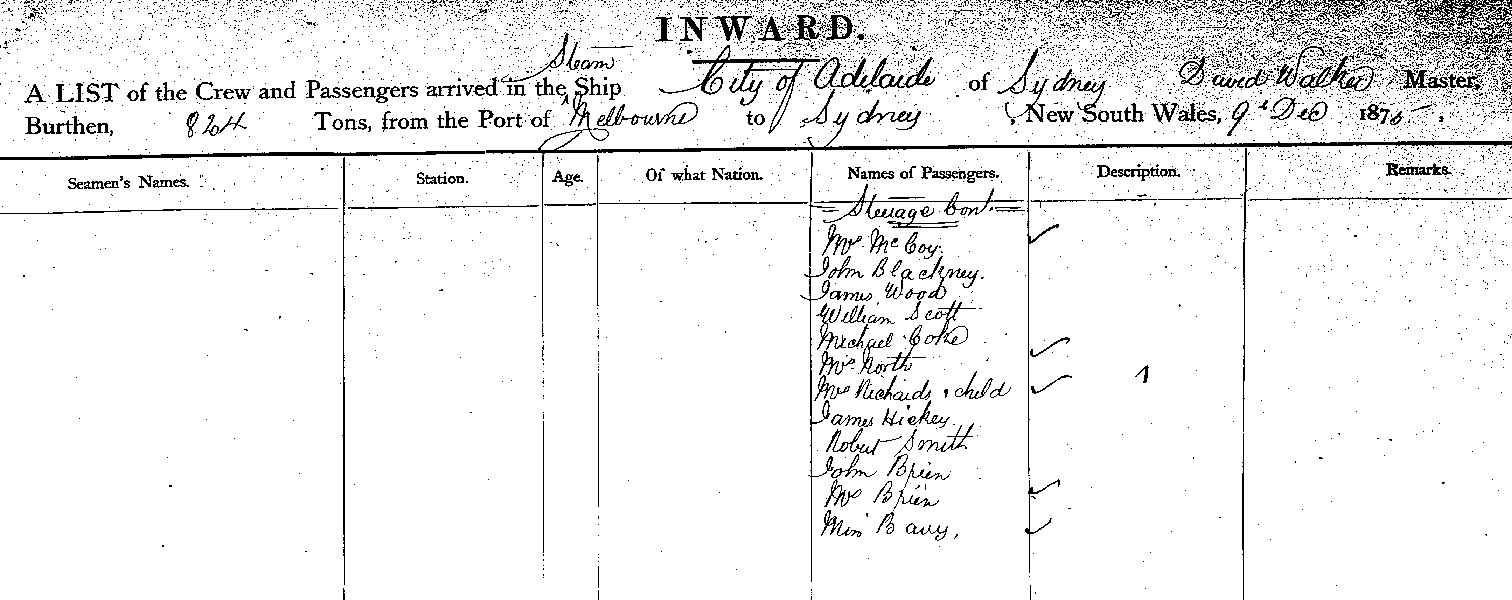 INWARD.
Steam
A LIST of the Crew and Passengers arrived in the Ship City of Adelaide of Sydney David Walker Master,
Burthen, 824 Tons, from the Port of Melbourne to Sydney, New South Wales, 9th Dec 1875.
Seamen's Names. Station. Age. Of what Nation. Names of Passengers. Description. Remarks.
Steerage Cont.
Mrs. McCoy.
John Blackney.
James Wood
William Scott
Michael Coke
Mrs. North
Mrs Richards & child 1
James Hickey
Robert Smith
John Brien
Mrs Brien
Miss